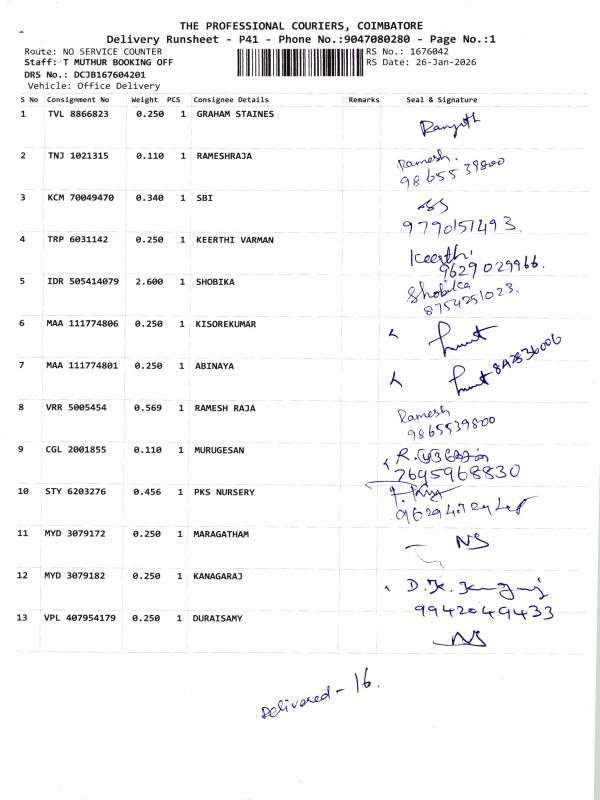 THE PROFESSIONAL COURIERS, COIMBATORE
Delivery Runsheet - P41 - Phone No.:9047080280 - Page No.:1
Route: NO SERVICE COUNTER RS No.: 1676042
Staff: T MUTHUR BOOKING OFF RS Date: 26-Jan-2026
DRS No.: DCJB167604201
Vehicle: Office Delivery
S No Consignment No Weight PCS Consignee Details Remarks Seal & Signature
1 TVL 8866823 0.250 1 GRAHAM STAINES Ranjith
2 TNJ 1021315 0.110 1 RAMESHRAJA Ramesh.
9865539800
3 KCM 70049470 0.340 1 SBI
9790157493.
4 TRP 6031142 0.250 1 KEERTHI VARMAN Keerthi.
9629029966.
5 IDR 505414079 2.600 1 SHOBIKA Shobika
8754251023.
6 MAA 111774806 0.250 1 KISOREKUMAR
7 MAA 111774801 0.250 1 ABINAYA
8 VRR 5005454 0.569 1 RAMESH RAJA Ramesh
9865539800
9 CGL 2001855 0.110 1 MURUGESAN
7695968830
10 STY 6203276 0.456 1 PKS NURSERY
11 MYD 3079172 0.250 1 MARAGATHAM NS
12 MYD 3079182 0.250 1 KANAGARAJ
9942049433
13 VPL 407954179 0.250 1 DURAISAMY NS
Delivered - 16.